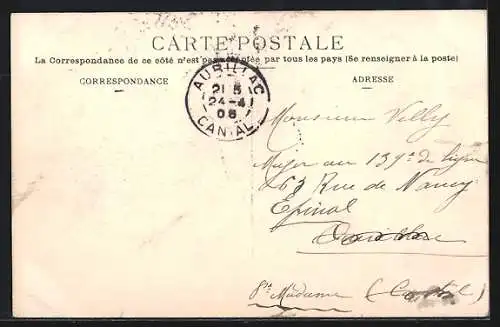 CARTE POSTALE
La Correspondance de ce côté n'est pas acceptée par tous les pays (Se renseigner à la poste)
CORRESPONDANCE
ADRESSE
AURILLAC
21 5
24-4
08
CANTAL
Monsieur Villy
Major au 139e de ligne
63 Rue de Nancy
Epinal
Pte Madame (Cantal)